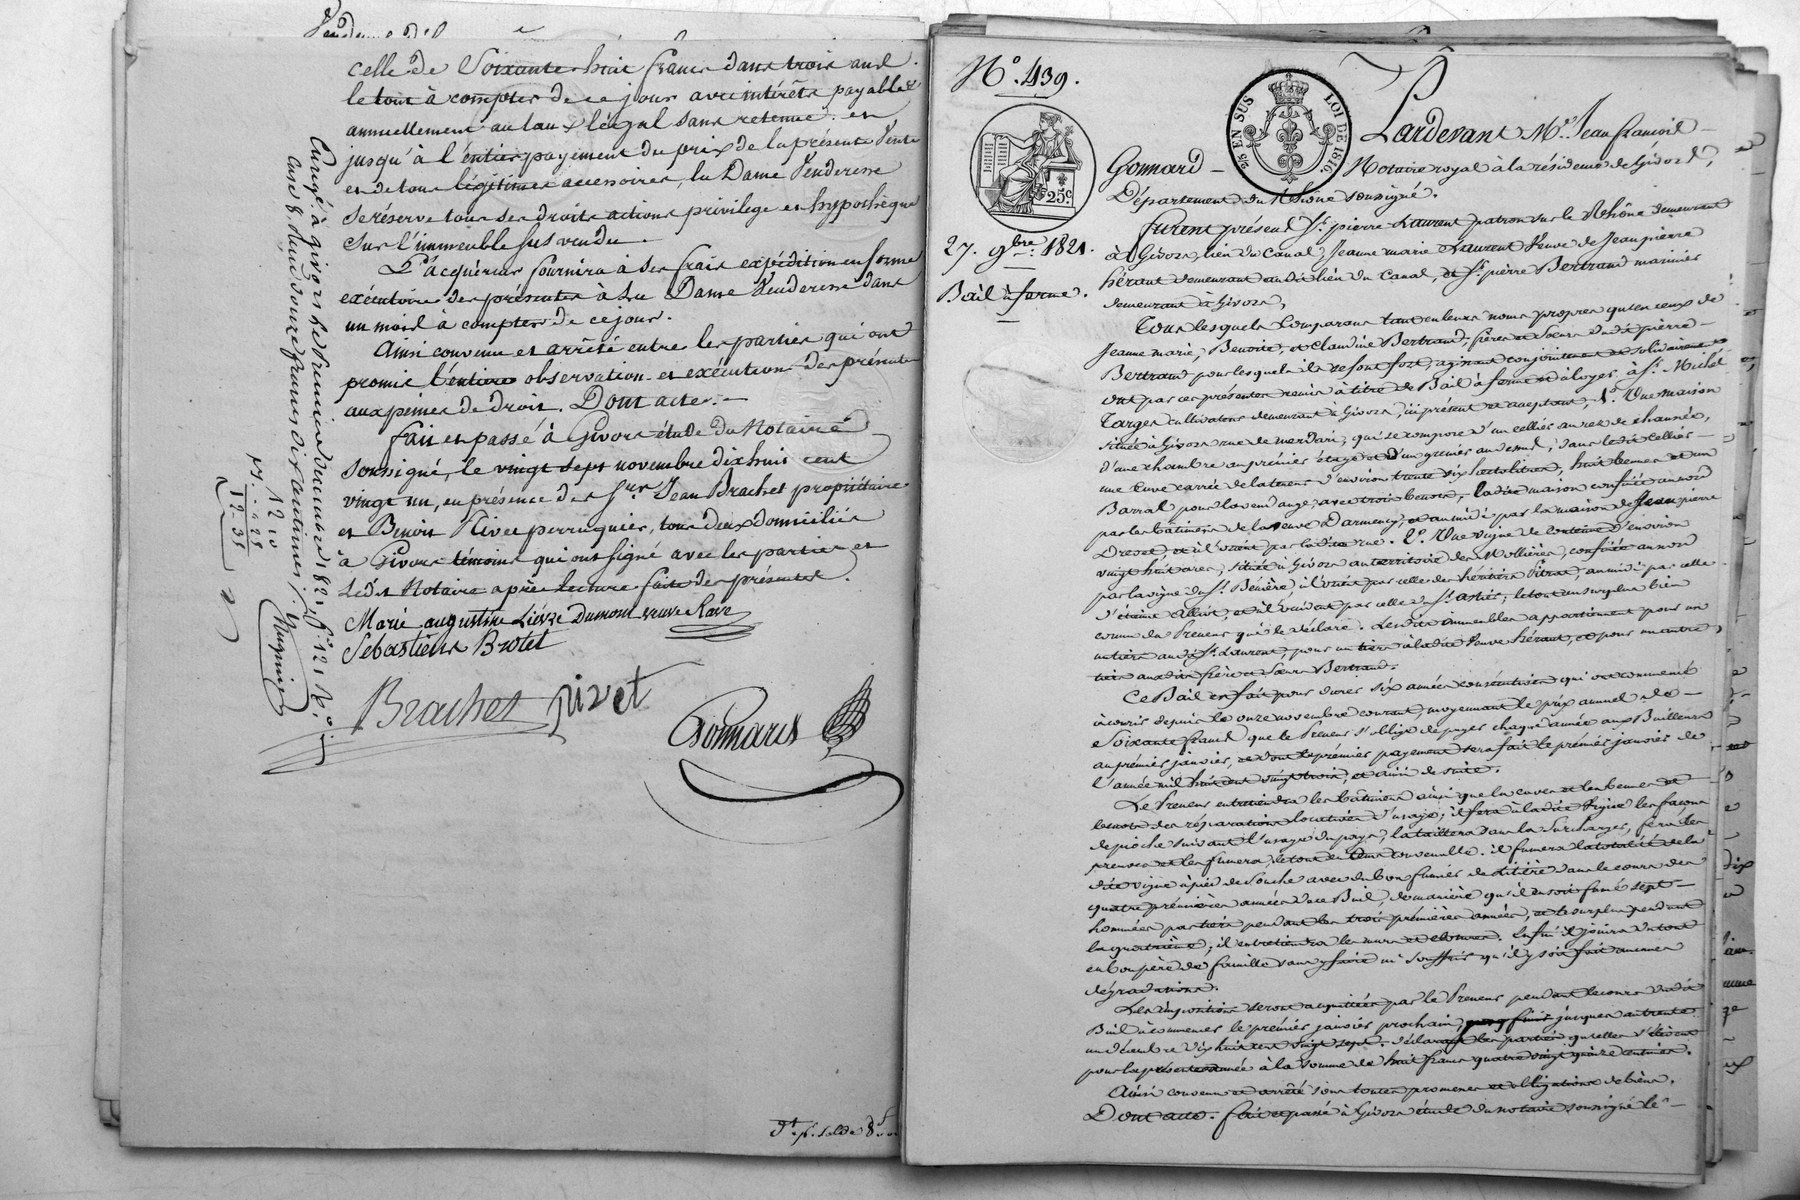 celle de Soixante huit francs dans trois ans.
le tout à compter de ce jour avec intérêts payables
annuellement au taux légal sans retenue. et
jusqu'à l'entier payement du prix de la présente Vente
et de tous légitimes accessoires, la Dame Venderesse
se réserve tous ses droits actions privilege et hypothèque
sur l'immeuble sus vendu.
L'acquéreur fournira à ses frais expédition en forme
exécutoire des présentes à la Dame Venderesse dans
un mois à compter de ce jour.
Ainsi convenu et arrêté entre les parties qui ont
promis l'entière observation et exécution des présentes
aux peines de droit. Dont acte. —
fait et passé à Givors étude du Notaire
soussigné, le vingt sept novembre dix huit cent
vingt un, en présence des Srs Jean Brachet propriétaire
et Benoit Rivet perruquier, tous deux domiciliés
à Givors témoins qui ont signé avec les parties et
Le dit Notaire après lecture faite des présentes.
Marie augustine Liévre Dumont veuve Rave
Sebastien Brotet
Brachet
rivet
Gonnard
Enregé à givors le premier décembre 1821 f° 121 R°
Case 8. deux douze francs dix centimes.
12 10
1 21
Nº. 439.
25 EN SUS
LOI DE 1816
25c
27. 9bre. 1821.
Bail à ferme.
Pardevant Me. Jean françois —
Gonnard — Notaire royal à la résidence de Givors,
Département du Rhône soussigné.
Furent présens Sr. pierre Laurent patron sur le Rhône demeurant
à Givors, lieu du Canal, Jeanne marie Laurent Veuve de Jean pierre
héraut demeurant audit lieu du Canal, et Sr. pierre Bertrand marinier
demeurant à Givors,
Tous lesquels comparans tant en leurs noms propres qu'en ceux de
Jeanne marie, Benoite, et Claudine Bertrand, frères et Sœurs dudit pierre —
Bertrand pour lesquels ils se font fort, agissant conjointement et solidairement
ont par ces présentes remis à titre de Bail à ferme et à loyer à Sr. Michel
Targes cultivateur demeurant à Givors, ici présent et acceptant, 1º. Une maison
située à Givors rue de merdari, qui se compose d'un cellier au rez de chaussée,
d'une chambre au premier étage et d'un grenier au dessus; dans ledit cellier —
une cuve carrée de la tenue d'environ trente six hectolitres, huit bennes et un
Barral pour la vendange, avec trois benots, ladite maison confinée au nord
par les bâtimens de la veuve Darmency, et au midi par la maison de Jean pierre
Drevet, et à l'orient par ladite rue. 2º. Une vigne de contenue d'environ
vingt huit ares, située à Givors au territoire des Mollières, confinée au nord
par la vigne du Sr. Benière, à l'orient par celle des héritiers Vitrat, au midi par celle
d'étienne Alliot, et à l'occident par celle du Sr. astier; le tout au surplus bien
connu du Preneur qui le déclare. Lesdits immeubles appartiennent pour un
un tiers audit Sr. Laurent, pour un tiers à ladite Veuve héraut, et pour un autre
tiers auxdits frères et Sœurs Bertrand.
Ce Bail est fait pour durer six années consécutives qui ont commencé
à courir depuis le onze novembre courant, moyennant le prix annuel de —
Soixante francs que le Preneur s'oblige de payer chaque année aux Bailleurs
au premier janvier, et dont le premier payement sera fait le premier janvier de
l'année mil huit cent vingt trois, et ainsi de suite.
Le Preneur entretiendra les bâtimens ainsi que la cuve et les bennes et
benots des réparations locatives d'usage; il fera à ladite Vigne les façons
de pioche suivant l'usage du pays, la taillera sans la surcharger, fera des
provins et les fumera, le tout en tems convenable. il fumera la totalité de la
dite vigne à pied de souche avec du bon fumier de litière dans le cours des
quatre premières années dudit Bail, de manière qu'il en soit fumé sept —
hommées par tiers pendant les trois premières années, et le surplus pendant
la quatrième; il entretiendra les murs et clôtures. Enfin il jouira du tout
en bon père de famille sans y faire ni souffrir qu'il y soit fait aucunes
dégradations.
Les impositions seront acquittées par le Preneur pendant le cours dudit
Bail à commencer le premier janvier prochain, jusques au trente
un décembre dix huit cent vingt sept. déclarant les parties qu'elles s'élèvent
pour la présente année à la somme de huit francs quatre vingt quinze centimes.
Ainsi convenu et arrêté sous toutes promesses et obligations de biens.
Dont acte. fait et passé à Givors étude du notaire soussigné le —